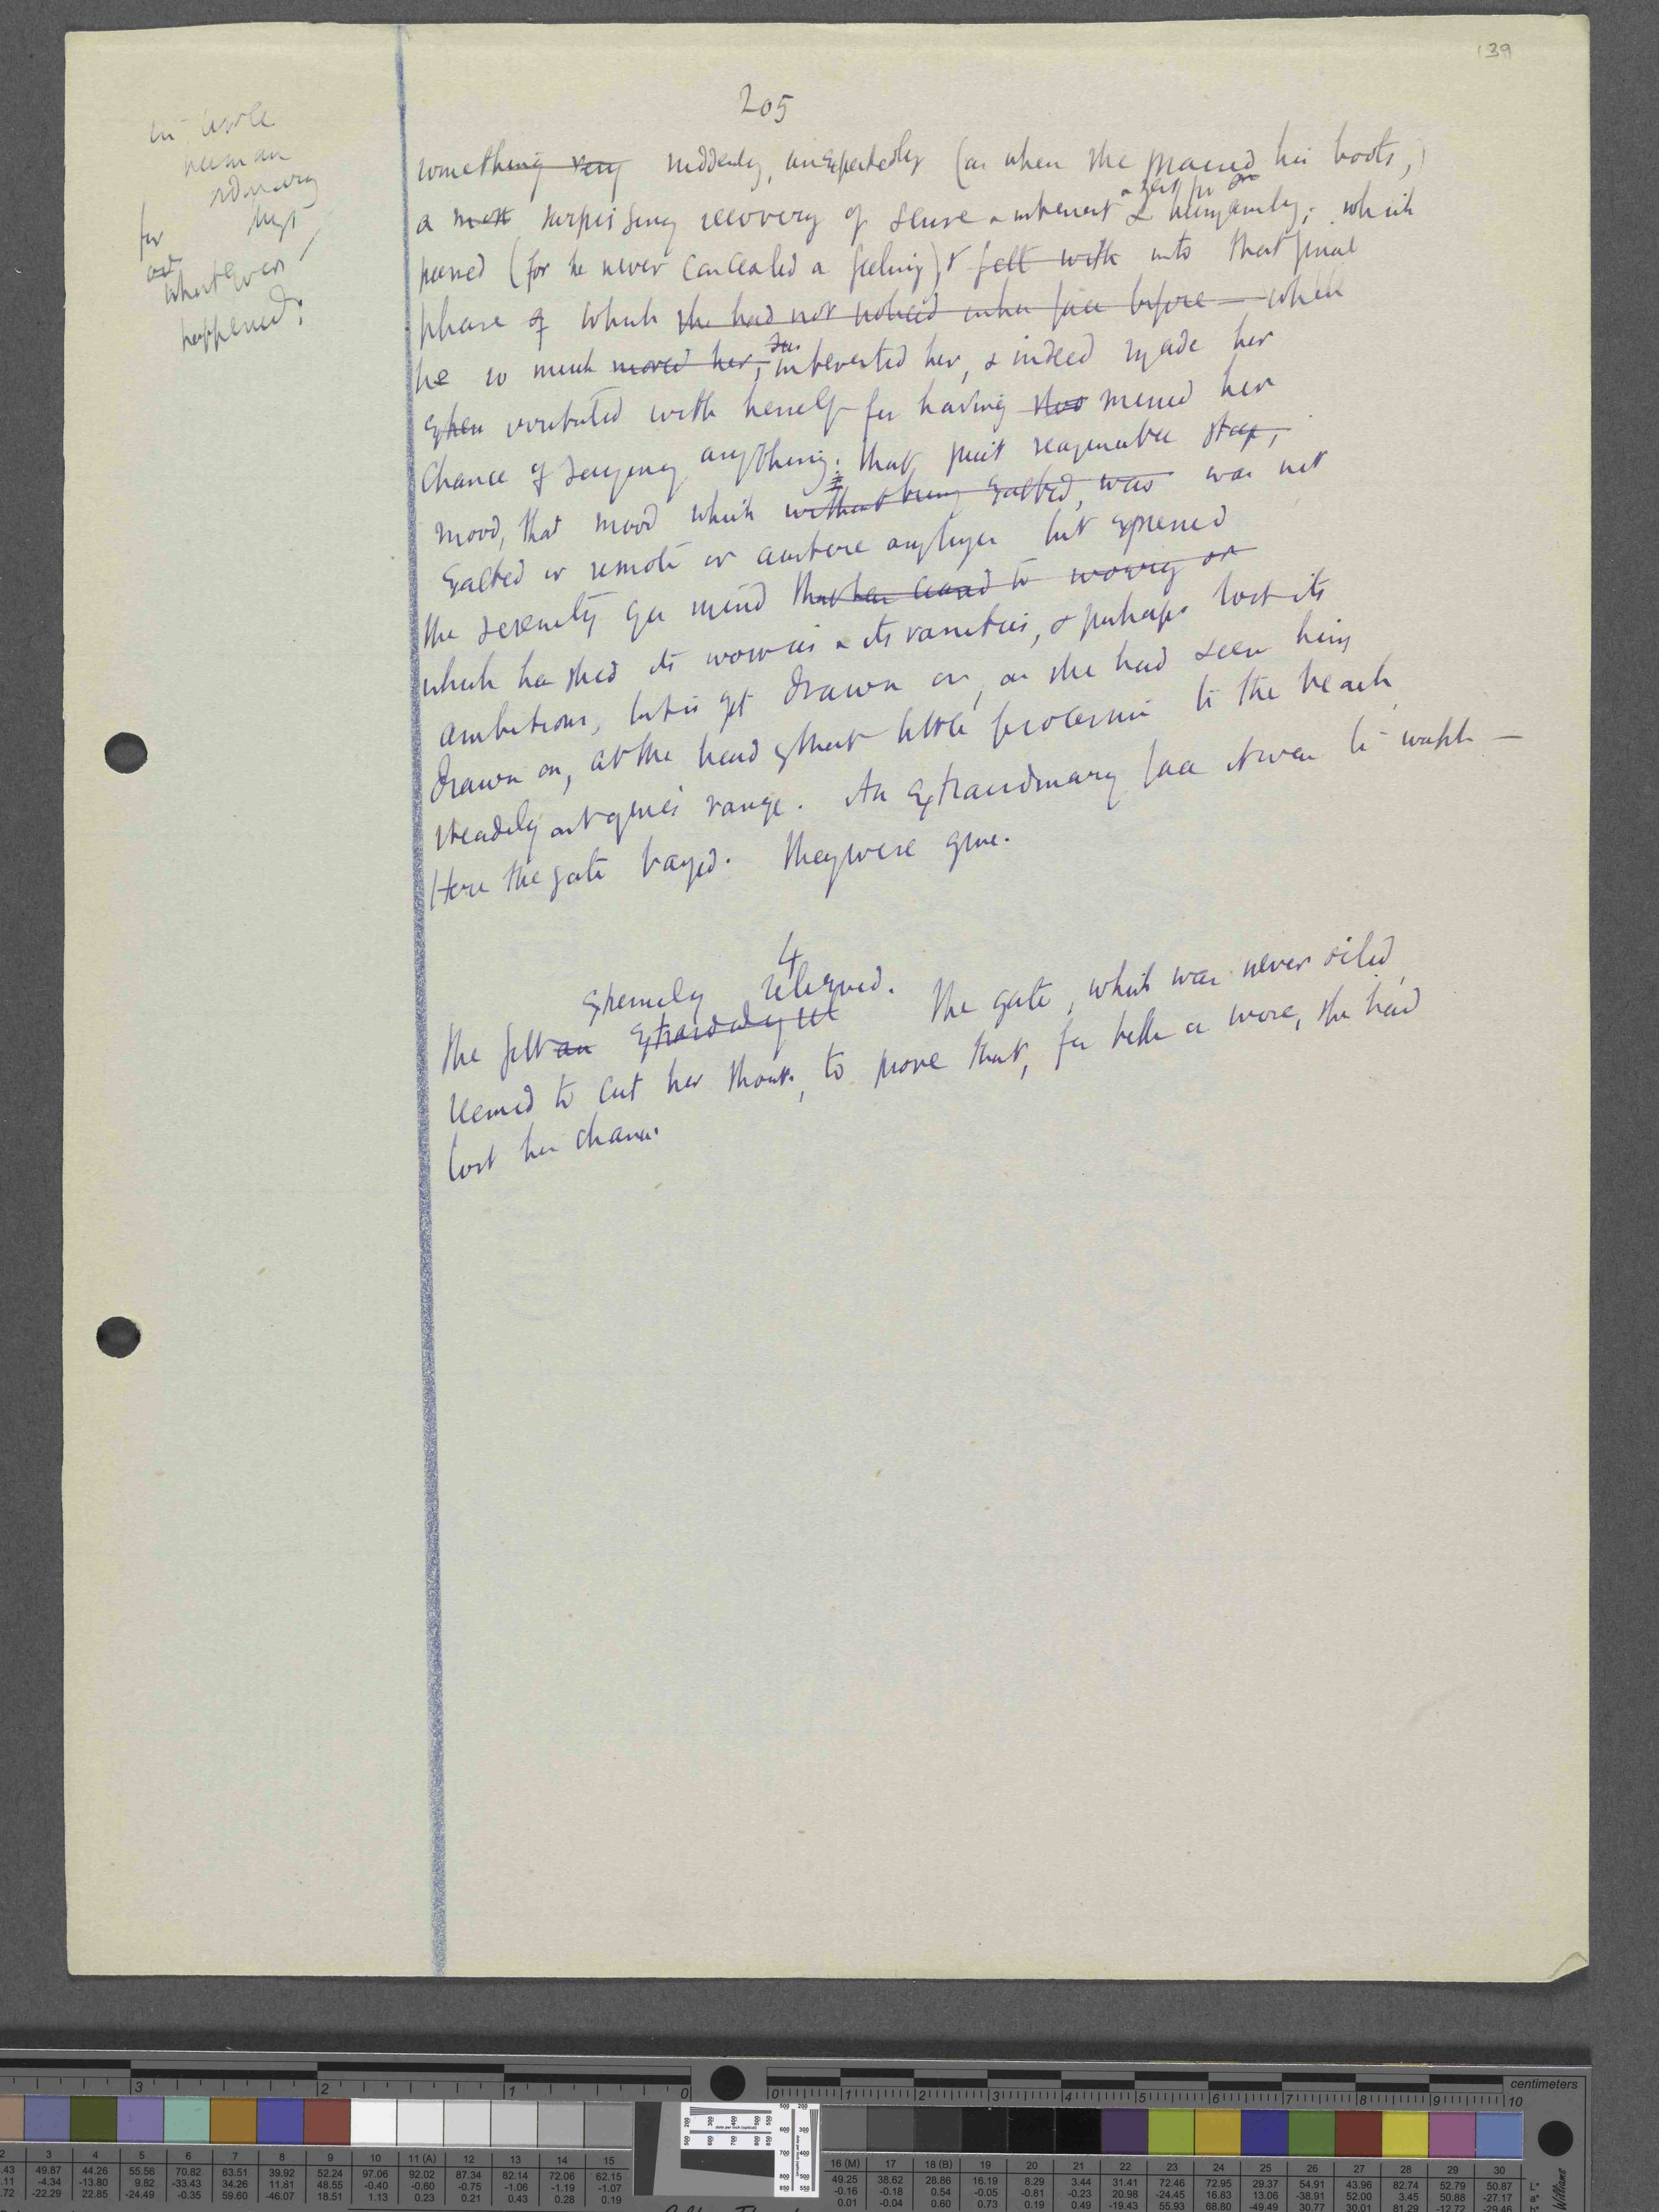 139
205
in
human
ordinary
for
whatever
happened:
something very suddenly, unexpectedly (as when she praised his boots,)
a most surprising recovery of sense & interest & humanity; which
passed (for he never concealed a feeling) & fell with into that final
phase of which she had not noticed in her face before — which
he so much moved her, interested her, & indeed made her
irritated with herself for having missed her
chance of saying anything: that quiet reasonable
mood, that mood which without being exalted, was was not
exalted or remote or austere any longer but expressed
the serenity of a mind that has ceased to worry or
which has shed its worries & its vanities, & perhaps lost its
ambitions, but is yet drawn on, as she had seen him
drawn on, at the head of that little procession to the beach
steadily out of one's range. An extraordinary face it was to watch —
Here the gate banged. They were gone.
4
extremely relieved.
She felt an The gate, which was never oiled,
seemed to cut her to prove that, for better or worse, she had
lost her chance.
centimeters
3 2 1 0 0 1 2 3 4 5 6 7 8 9 10
2 3 4 5 6 7 8 9 10 11 (A) 12 13 14 15 16 (M) 17 18 (B) 19 20 21 22 23 24 25 26 27 28 29 30
.43 49.87 44.26 55.56 70.82 63.51 39.92 52.24 97.06 92.02 87.34 82.14 72.06 62.15 49.25 38.62 28.86 16.19 8.29 3.44 31.41 72.46 72.95 29.37 54.91 43.96 82.74 52.79 50.87 L*
.11 -4.34 -13.80 9.82 -33.43 34.26 11.81 48.55 -0.40 -0.60 -0.75 -1.06 -1.19 -1.07 -0.16 -0.18 0.54 -0.05 -0.81 -0.23 20.98 -24.45 16.83 13.06 -38.91 52.00 3.45 50.88 -27.17 a*
.72 -22.29 22.85 -24.49 -0.35 59.60 -46.07 18.51 1.13 0.23 0.21 0.43 0.28 0.19 0.01 -0.04 0.60 0.73 0.19 0.49 -19.43 55.93 68.80 -49.49 30.77 30.01 81.29 -12.72 -29.46 b*
Williams